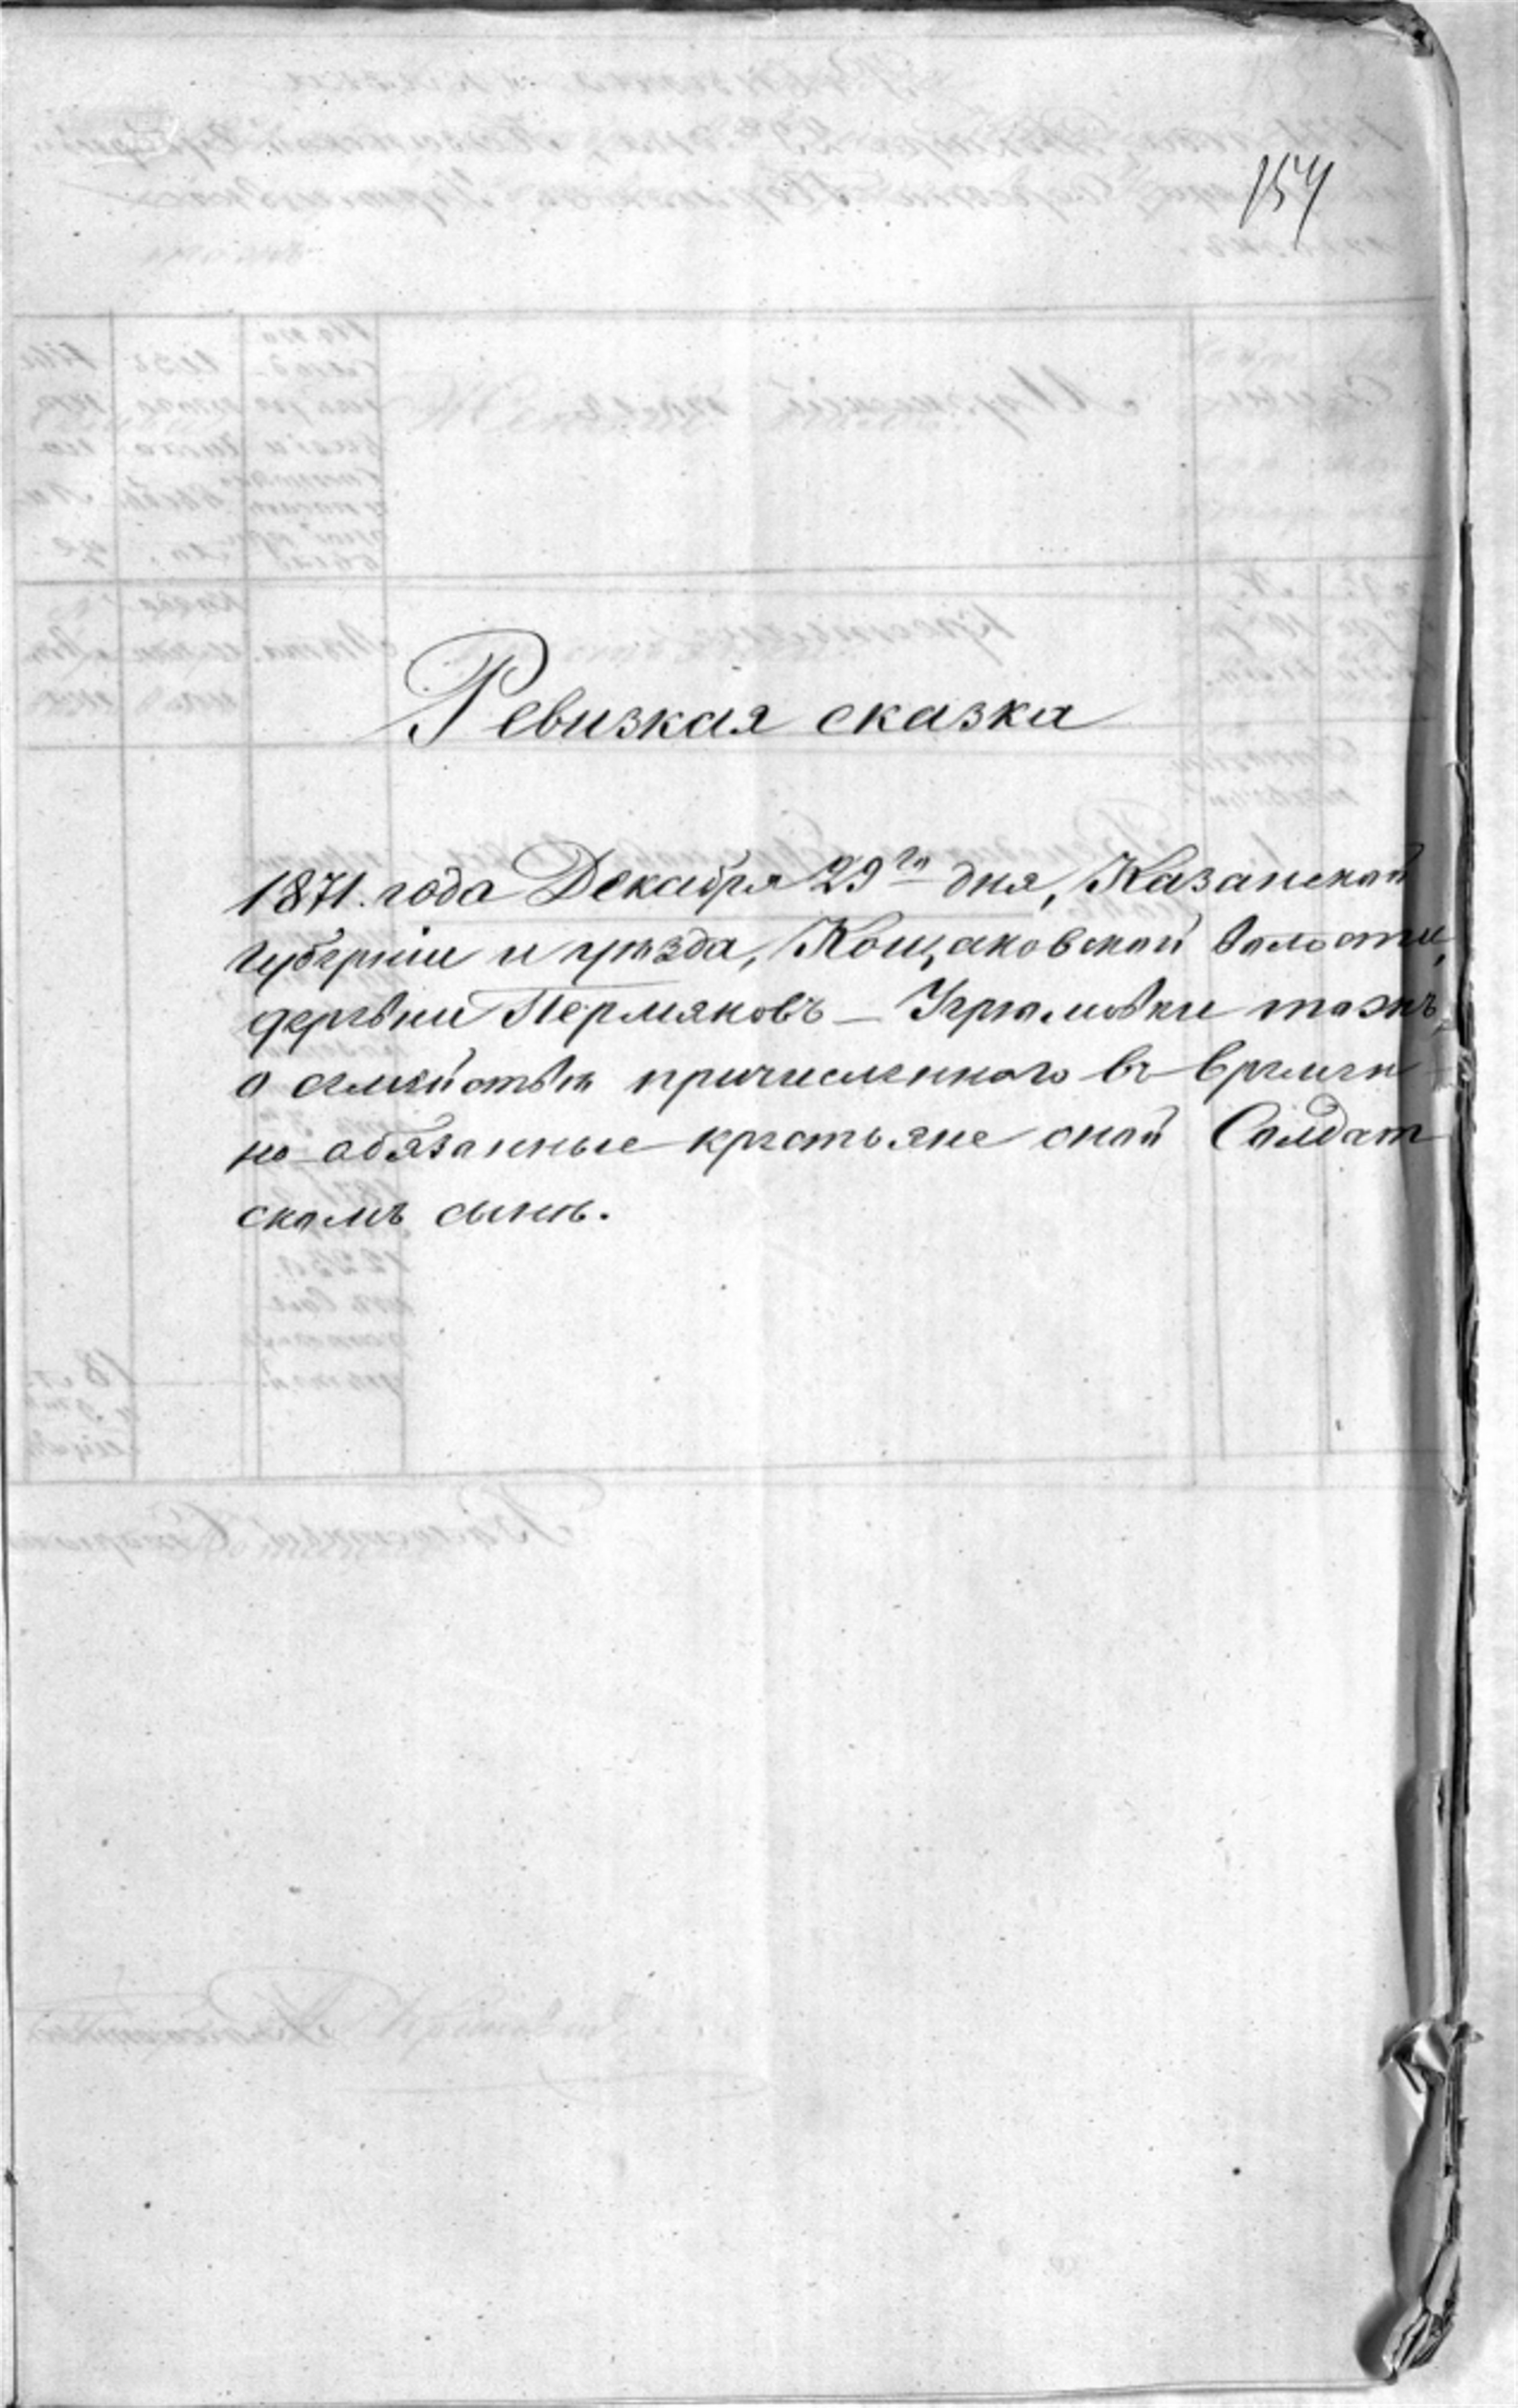 154
Ревизкая сказка
1871. года Декабря 29го дня, Казанской
губерніи и уѣзда, Кощаковской волости,
деревни Пермяковъ –
о семействѣ причисленного въ времен
но обязанные крестьяне оной Солдат
скомъ сынѣ.